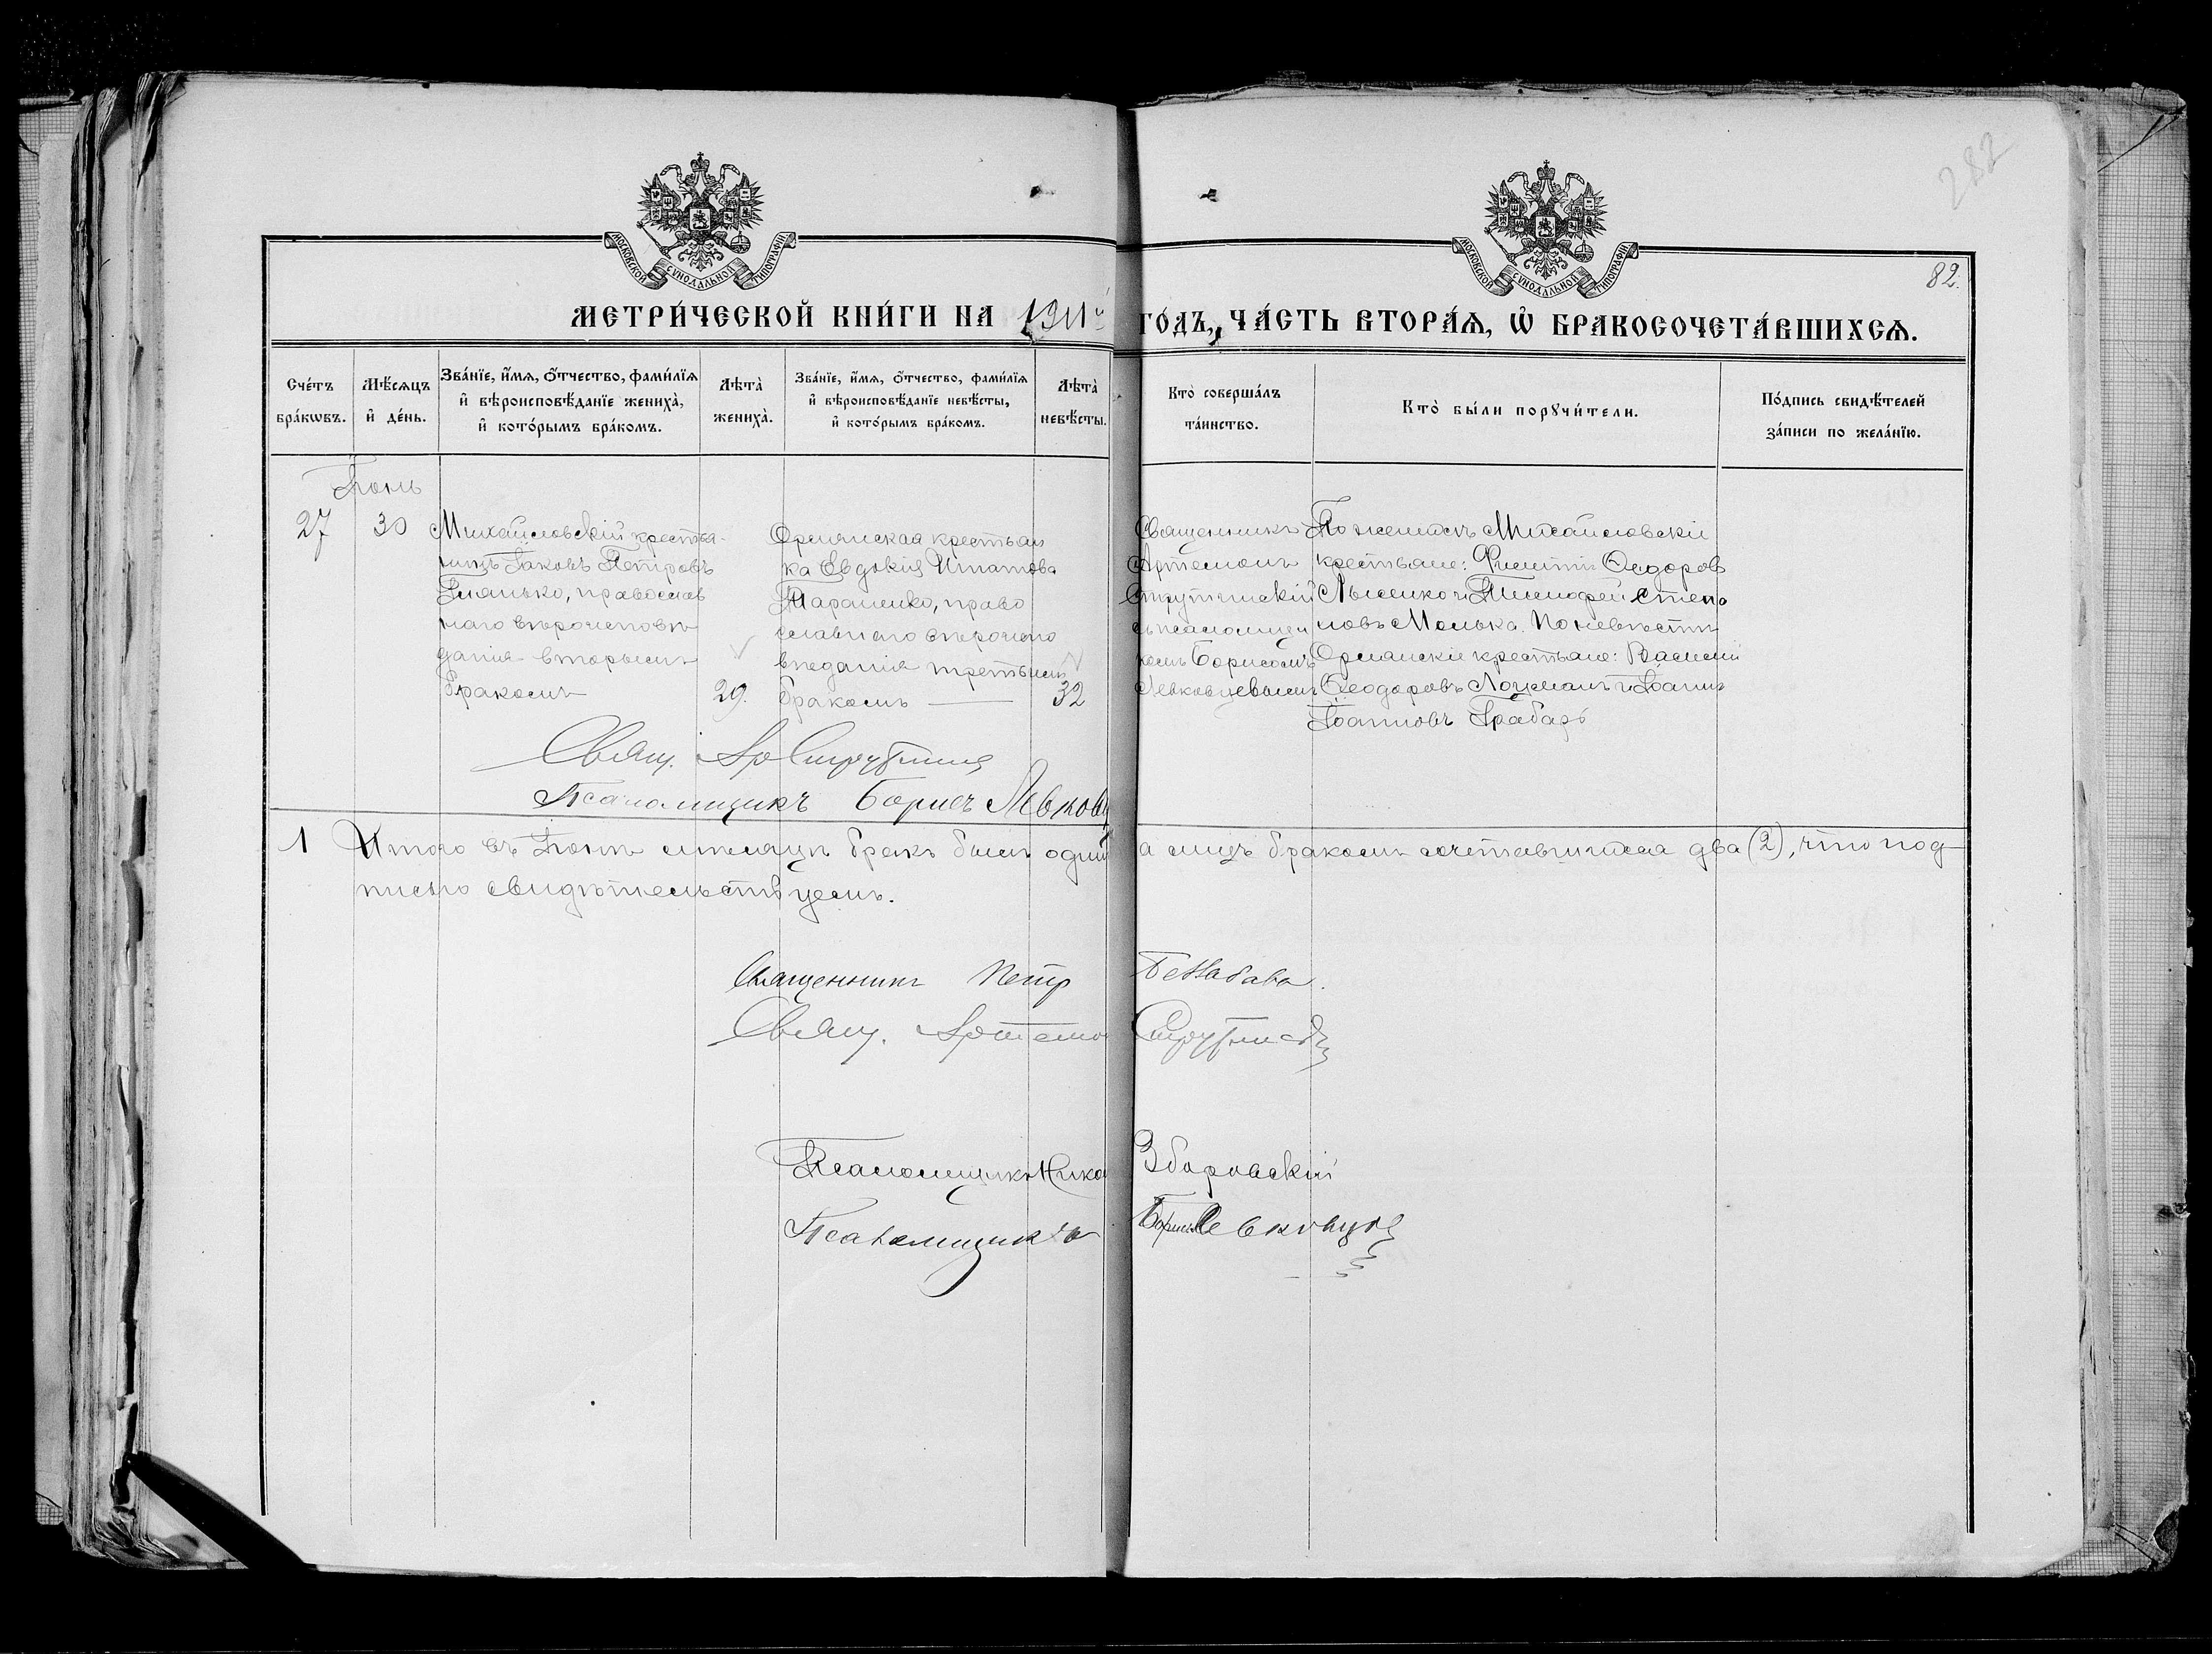 282
82.
МОСКОВСКОЙ СУНОДАЛЬНОЙ ТИПОГРАФІИ
МОСКОВСКОЙ СУНОДАЛЬНОЙ ТИПОГРАФІИ
МЕТРИ́ЧЕСКОЙ КНИ́ГИ НА 1911й ГО́ДЪ, ЧА́СТЬ ВТОРА́Ѧ, Ѡ҆ БРАКОСОЧЕТА́ВШИХСѦ.
Сче́тъ бра́кѡвъ.
Мѣ́сѧцъ и҆ де́нь.
Зва́нїе, и҆́мѧ, о҆́тчество, фами́лїѧ и҆ вѣроисповѣ́данїе жениха̀, и҆ кото́рымъ бра́комъ.
Лѣта̀ жениха̀.
Зва́нїе, и҆́мѧ, о҆́тчество, фами́лїѧ и҆ вѣроисповѣ́данїе невѣ́сты, и҆ кото́рымъ бра́комъ.
Лѣта̀ невѣ́сты.
Кто̀ соверша́лъ та́инство.
Кто̀ бы́ли порꙋчи́тели.
По́дпись свидѣ́телей за́писи по жела́нїю.
Іюнь
27
30
Михайловскій крестья-
нинъ Іаковъ Петровъ
православ
наго вѣроисповѣ
данія вторымъ
бракомъ
29.
Орлянская крестьян
ка Евдокія Ипатова
Тараненко, право
славнаго вѣроиспо
вѣданія третьимъ
бракомъ
32
Священникъ
Артемонъ
Струтинскій
съ псаломщи
комъ Борисомъ
Левковцевымъ
По женихѣ Михайловскіе
крестьяне: Филиппъ Ѳеодоров
Лысенко и Тимофей Степа
новъ Молька. По невѣстѣ
Орлянскіе крестьяне: Василій
Ѳеодоровъ Лоцманъ и Іоаннъ
Іоанновъ Грабарь
Свящ. Ар Струтинск
Псаломщикъ Борисъ Левковц
1 Итого въ Іюнѣ мѣсяцѣ бракъ былъ одинъ а лицъ бракомъ сочетавшихся два (2), что под-
писью свидѣтельствуемъ.
Священникъ Петр
Свящ. Артемон Струтинскій
Псаломщикъ Нико Зборовскій
Псаломщикъ Борисъ Левковцев